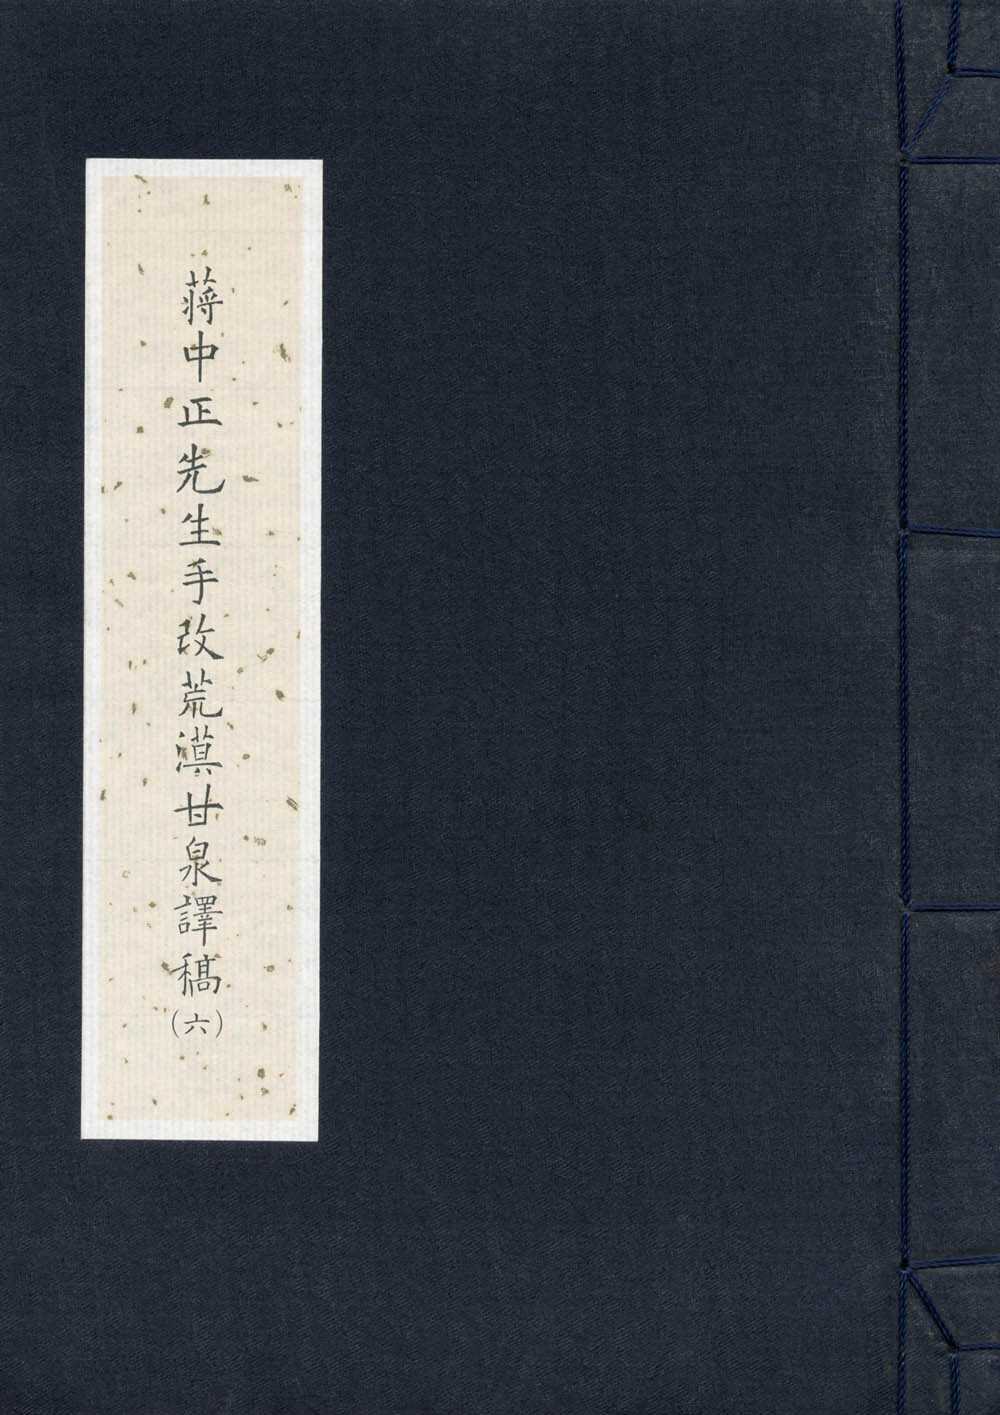 蔣中正先生手改荒漠甘泉譯稿(六)